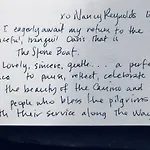 to Nancy Reynolds
I eagerly await my return to the
tranquil Oasis that is
The Stone Boat.
Lovely, sincere, gentle... a perfect
to pause, reflect, celebrate
the beauty of the Camino and
people who bless the pilgrims
their service along the Way